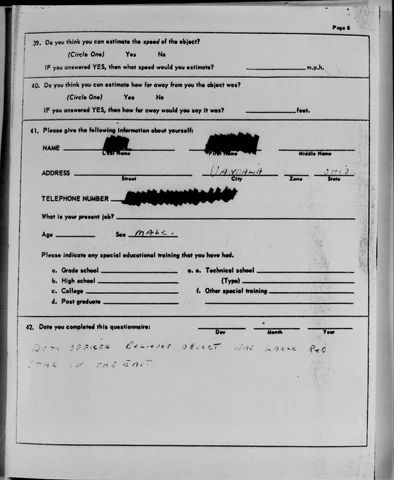 Page 8
39. Do you think you can estimate the speed of the object?
(Circle One) Yes No
IF you answered YES, then what speed would you estimate? m.p.h.
40. Do you think you can estimate how far away from you the object was?
(Circle One) Yes No
IF you answered YES, then how far away would you say it was? feet.
41. Please give the following information about yourself:
NAME
Last Name First Name Middle Name
ADDRESS VANDALIA OHIO
Street City Zone State
TELEPHONE NUMBER
What is your present job?
Age Sex MALE.
Please indicate any special educational training that you have had.
a. Grade school e. Technical school
b. High school (Type)
c. College f. Other special training
d. Post graduate
42. Date you completed this questionnaire:
Day Month Year
DUTY OFFICER BELIEVES OBJECT WAS LARGE RED
STAR IN THE EAST.